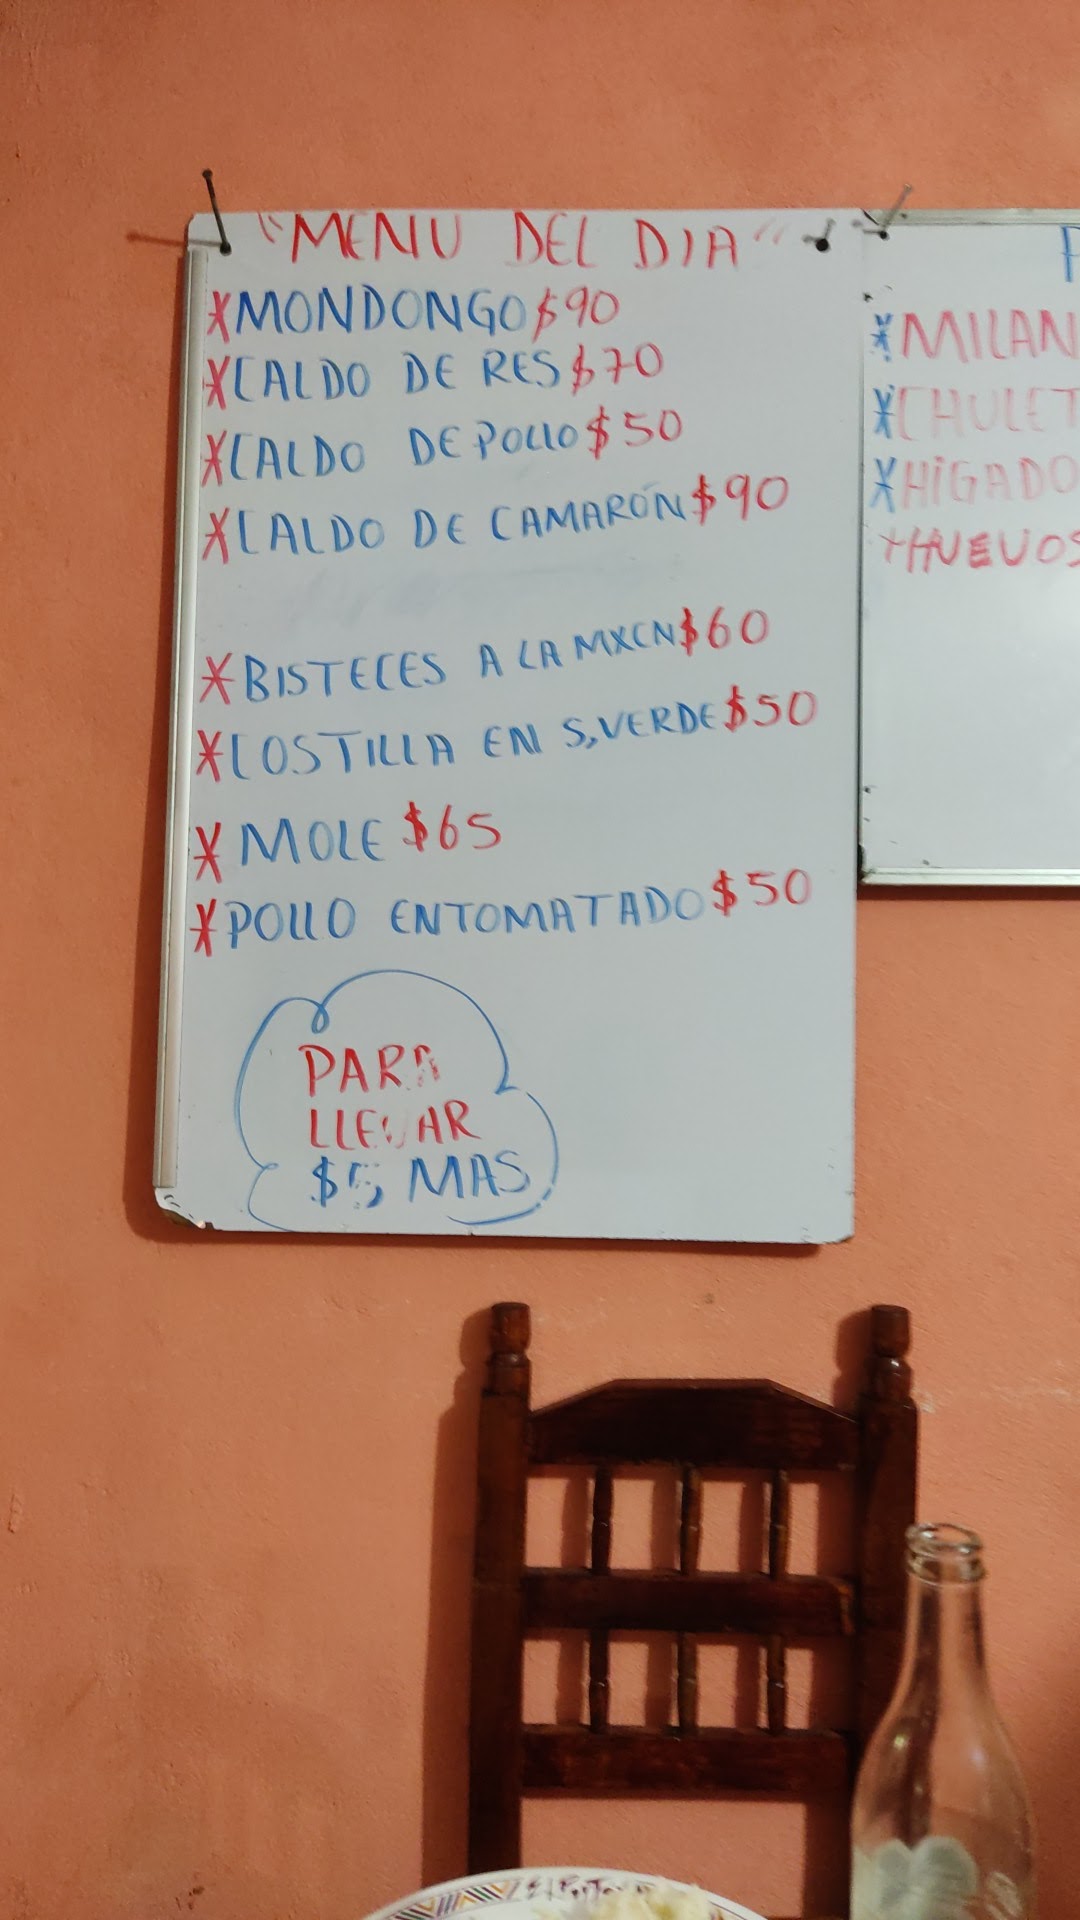 "MENU DEL DIA"
*MONDONGO $90
*CALDO DE RES $70
*CALDO DE POLLO $50
*CALDO DE CAMARÓN $90
*BISTECES A LA MXCN $60
*COSTILLA EN S,VERDE $50
*MOLE $65
*POLLO ENTOMATADO $50
PARA
LLEVAR
$5 MAS
*MILAN
*CHULET
*HiGADO
+HUEVOS